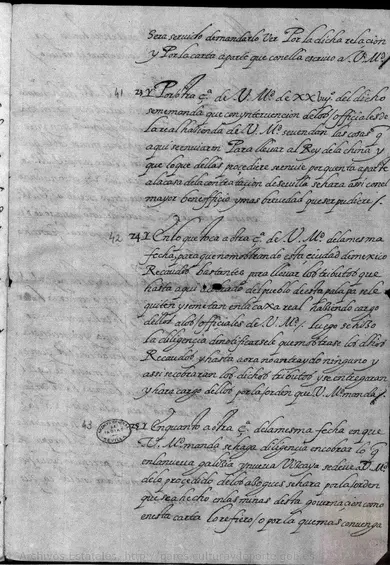 sera servido demandarlo Ver Por la dicha relacion
y Por la carta aparte que con ella escrivo a V. M.d /
41 23 Y Por otra ç.a de V. M.d de XX viij del dicho
se me manda que con yntervencion de los officiales de
la real hazienda de V. M.d se vendan las cosas q
aqui se enviaron Para llevar al Rey de la china y
que lo que dellas procediere se envie por quenta aparte
a la casa de la contratacion de sevilla se hara assi con el
mayor beneficio y mas brevedad que se pudiere /
42 24 I En lo que toca a otra ç.a de V. M.d de la mesma
fecha para que no mostrando esta ciudad de mexico
Recaudos bastantes para llevar los tributos que
hasta aqui del pueblo de yztapalapa se le
quiten y se metan en la caxa real haziendo cargo
dellos a los officiales de V. M.d / luego se hizo
la diligencia de notificarsele que mostrase los dichos
Recaudos y hasta aora no an traydo ninguno y
assi se cobraran los dichos tributos y se entregaran
y hara cargo dellos por la orden que V. M.d manda /
43 25 I En quanto a otra ç.a de la mesma fecha en que
V. M.d manda se haga diligencia en cobrar lo q
en la nueva galizia y nueva Vizcaya se deve a V. M.d
de lo procedido de los azogues se hara por la orden
que se a hecho en las minas desta governacion como
en esta carta lo refiero / o por la que mas convenga